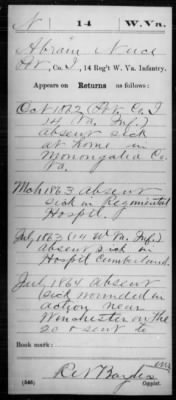 N 14 W. Va.
Abram Nuce
Pvt., Co. I, 14 Reg't W. Va. Infantry.
Appears on Returns as follows:
Oct 1862 (Pvt Co. I
14 Va. Inf.)
absent sick
at home in
Monongalia Co.
Va.
Mch 1863 absent
sick in Regimental
Hospit.
July 1863 (14 W Va. Inf.)
absent sick in
Hospit Cumberland.
July 1864 absent
sick wounded in
action near
Winchester on the
20 & sent to
Book mark:
(546) Copyist.